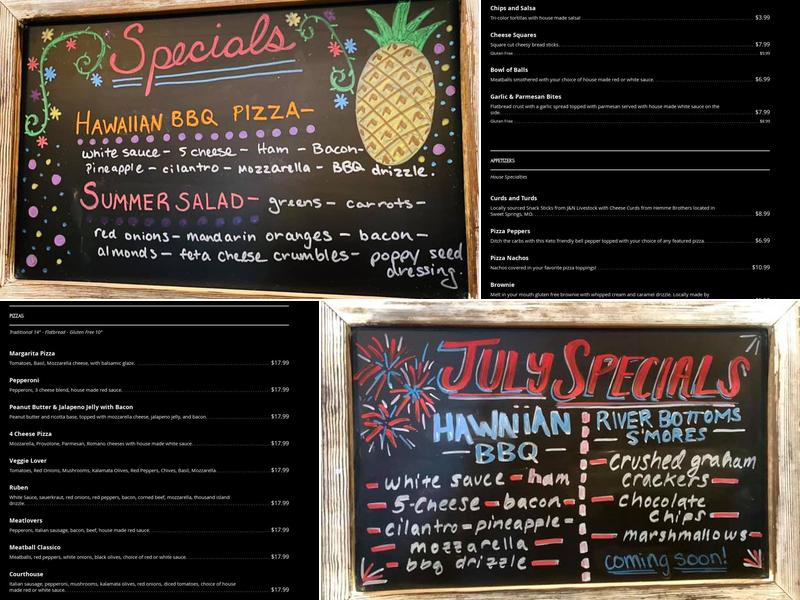 Specials
HAWAIIAN BBQ PIZZA-
white sauce - 5 cheese - Ham - Bacon-
Pineapple - cilantro - mozzarella - BBQ drizzle.
SUMMER SALAD - greens - carrots -
red onions - mandarin oranges - bacon -
almonds - feta cheese crumbles - poppy seed
dressing.
Chips and Salsa
Tri-color tortillas with house made salsa! $3.99
Cheese Squares
Square cut cheesy bread sticks. $7.99
Gluten Free $9.99
Bowl of Balls
Meatballs smothered with your choice of house made red or white sauce. $6.99
Garlic & Parmesan Bites
Flatbread crust with a garlic spread topped with parmesan served with house made white sauce on the
side. $7.99
Gluten Free $8.99
APPETIZERS
House Specialties
Curds and Turds
Locally sourced Snack Sticks from J&N Livestock with Cheese Curds from Hemme Brothers located in
Sweet Springs, MO. $8.99
Pizza Peppers
Ditch the carbs with this Keto friendly bell pepper topped with your choice of any featured pizza. $6.99
Pizza Nachos
Nachos covered in your favorite pizza toppings! $10.99
Brownie
Melt in your mouth gluten free brownie with whipped cream and caramel drizzle. Locally made by
PIZZAS
Traditional 14" - Flatbread - Gluten Free 10"
Margarita Pizza
Tomatoes, Basil, Mozzarella cheese, with balsamic glaze. $17.99
Pepperoni
Pepperoni, 3 cheese blend, house made red sauce. $17.99
Peanut Butter & Jalapeno Jelly with Bacon
Peanut butter and ricotta base, topped with mozzarella cheese, jalapeno jelly, and bacon. $17.99
4 Cheese Pizza
Mozzarella, Provolone, Parmesan, Romano cheeses with house made white sauce. $17.99
Veggie Lover
Tomatoes, Red Onions, Mushrooms, Kalamata Olives, Red Peppers, Chives, Basil, Mozzarella. $17.99
Ruben
White Sauce, sauerkraut, red onions, red peppers, bacon, corned beef, mozzarella, thousand island
drizzle. $17.99
Meatlovers
Pepperoni, Italian sausage, bacon, beef, house made red sauce. $17.99
Meatball Classico
Meatballs, red peppers, white onions, black olives, choice of red or white sauce. $17.99
Courthouse
Italian sausage, pepperoni, mushrooms, kalamata olives, red onions, diced tomatoes, choice of house
made red or white sauce. $17.99
JULY SPECIALS
HAWAIIAN
BBQ
- white sauce - ham
- 5-Cheese - bacon -
- cilantro - pineapple -
- mozzarella -
- bbq drizzle -
RIVER BOTTOMS
S'MORES
- crushed graham
crackers -
- chocolate
chips -
- marshmallows -
coming soon!